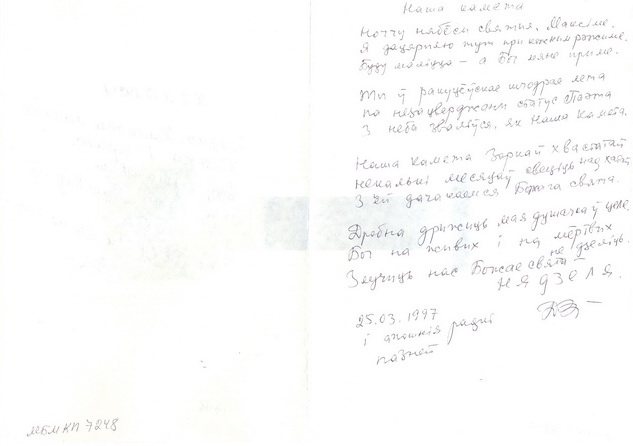 Наша камета
Ноччу нябёсы святыя, Максіме.
Я дацярплю тут пры кожным рэжыме.
Буду маліцца – а Бог мяне прыме.
Ты ў ракуцёўскае шчодрае лета
па незацверджаны статус Паэта
З неба зваліўся, як Наша Камета.
Наша камета Зоркай хвастатай
некалькі месяцаў свеціць над хатай
З ёй дачакаемся Божага свята.
Дробна дрыжыць мая душачка ў целе
Бог на жывых і на мёртвых
не дзеліць.
Злучыць нас Божае свята –
Нядзеля.
25.03.1997
і апошнія радкі
пазней
МБМ КП 7248